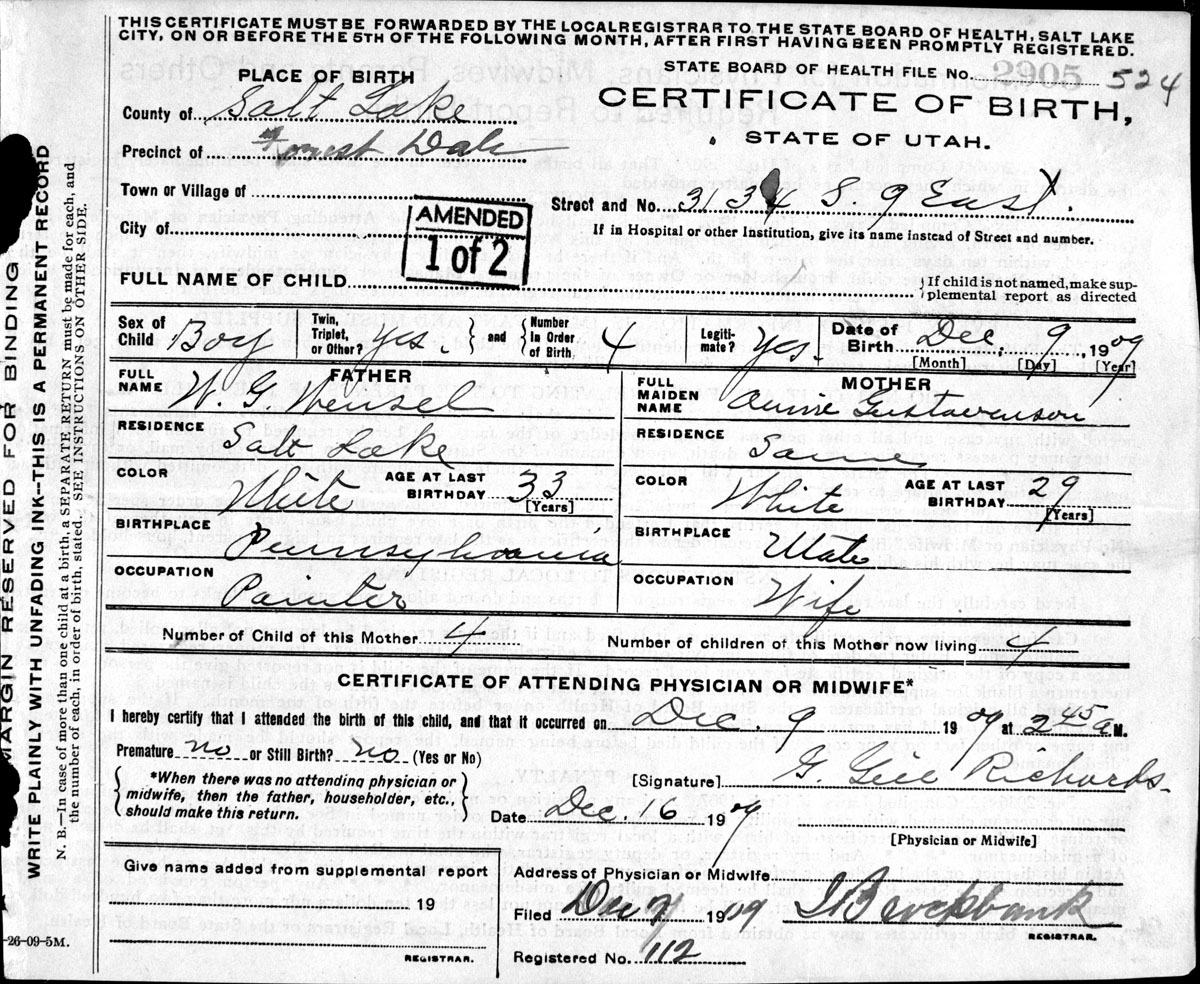 THIS CERTIFICATE MUST BE FORWARDED BY THE LOCAL REGISTRAR TO THE STATE BOARD OF HEALTH, SALT LAKE
CITY, ON OR BEFORE THE 5TH OF THE FOLLOWING MONTH, AFTER FIRST HAVING BEEN PROMPTLY REGISTERED.
STATE BOARD OF HEALTH FILE No. 2905 524
PLACE OF BIRTH
CERTIFICATE OF BIRTH,
STATE OF UTAH.
County of Salt Lake
Precinct of Forest Dale
Town or Village of
Street and No. 3134 S. 9 East.
City of
AMENDED
1 of 2
If in Hospital or other Institution, give its name instead of Street and number.
FULL NAME OF CHILD
If child is not named, make sup-
plemental report as directed
Sex of Child Boy Twin, Triplet, or Other? Yes. and Number In Order of Birth 4 Legiti- mate? Yes. Date of Birth Dec. 9 1909
[Month] [Day] [Year]
FATHER
FULL NAME W. G. Wensel
MOTHER
FULL MAIDEN NAME Annie Gustavenson
RESIDENCE Salt Lake
RESIDENCE Same
COLOR White AGE AT LAST BIRTHDAY 33 [Years]
COLOR White AGE AT LAST BIRTHDAY 29 [Years]
BIRTHPLACE Pennsylvania
BIRTHPLACE Utah
OCCUPATION Painter
OCCUPATION Wife
Number of Child of this Mother 4 Number of children of this Mother now living 4
CERTIFICATE OF ATTENDING PHYSICIAN OR MIDWIFE*
I hereby certify that I attended the birth of this child, and that it occurred on Dec 9 1909 at 2 45 a M.
Premature no or Still Birth? no (Yes or No)
*When there was no attending physician or
midwife, then the father, householder, etc.,
should make this return.
[Signature] G. Gill Richards.
Date Dec. 6 1909
[Physician or Midwife]
Give name added from supplemental report
19
REGISTRAR.
Address of Physician or Midwife
Filed 1909
REGISTRAR.
Registered No. 112
MARGIN RESERVED FOR BINDING
WRITE PLAINLY WITH UNFADING INK—THIS IS A PERMANENT RECORD
N. B.—In case of more than one child at a birth, a SEPARATE RETURN must be made for each, and
the number of each, in order of birth, stated. SEE INSTRUCTIONS ON OTHER SIDE.
-26-09-5M.